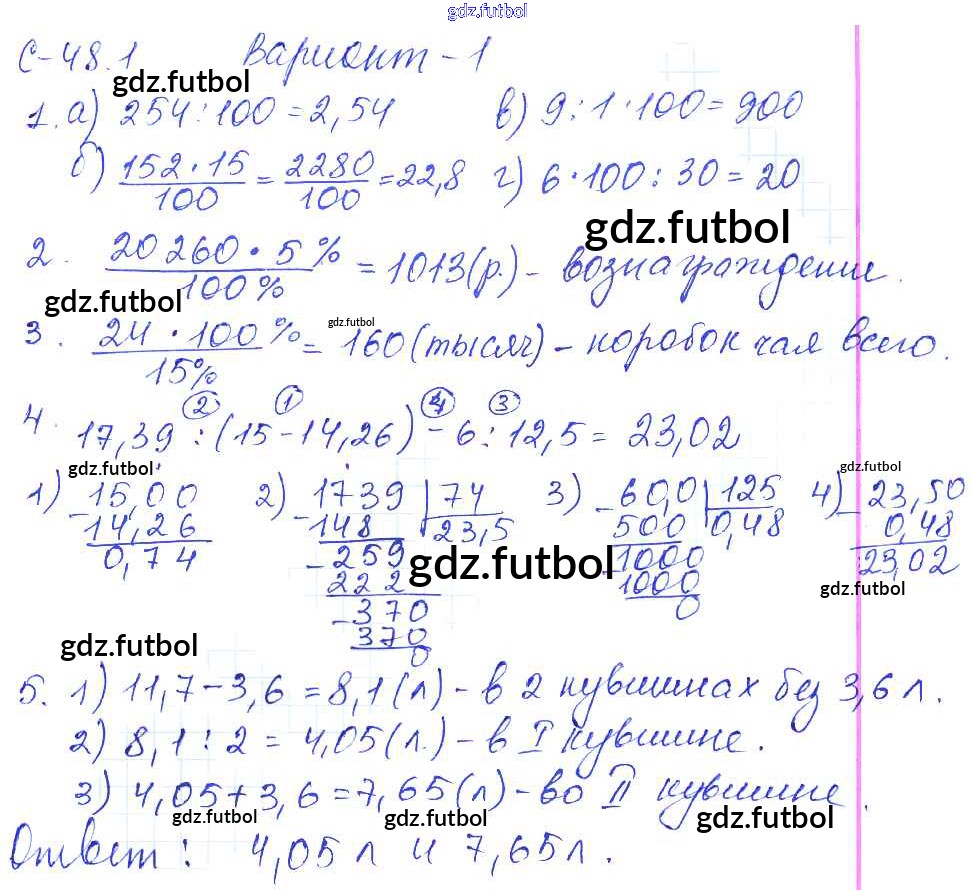 gdz.futbol
С-48.1 Вариант-1
gdz.futbol
1. а) 254:100=2,54 в) 9:1·100=900
б) 152·15/100 = 2280/100 = 22,8 г) 6·100:30=20
gdz.futbol
2. 20 260·5%/100% = 1013(р.) - вознаграждение.
gdz.futbol
3. 24·100%/15% = 160(тысяч) - коробок чая всего.
gdz.futbol
② ① ④ ③
4. 17,39:(15-14,26)-6:12,5=23,02
gdz.futbol gdz.futbol
1) 15,00 2) 1739 | 74 3) 60,0 | 125 4) 23,50
-14,26 -148 23,5 -500 0,48 -0,48
0,74 -259 -1000 23,02
gdz.futbol gdz.futbol
222 1000
-370 0
370
0
gdz.futbol
5. 1) 11,7-3,6=8,1(л) - в 2 кувшинах без 3,6 л.
2) 8,1:2=4,05(л.) - в I кувшине.
3) 4,05+3,6=7,65(л) - во II кувшине.
gdz.futbol gdz.futbol gdz.futbol
Ответ: 4,05 л и 7,65 л.